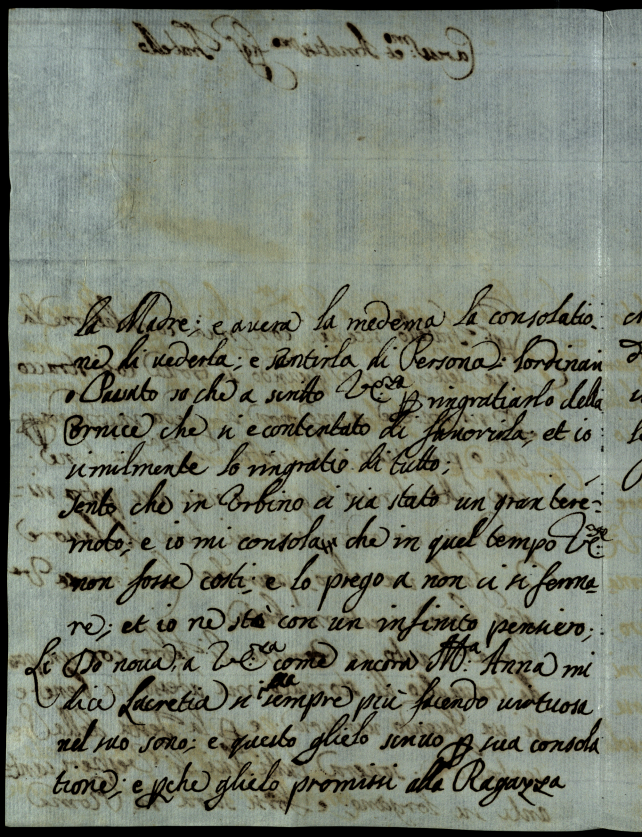 la Madre; e avera la medema la consolatio:
ne di vederla; e santirla di Persona; lordinari
o Passato so che a scritto V.S. p ringratiarlo della
Cornice che si e contentato di favorirla; et io
similmente lo ringratio di tutto;
sento che in Orbino ci sia stato un gran tere:
moto; e io mi consola che in quel tempo V.S.
non fosse costi; e lo prego a non ci si ferma:
re; et io ne stò con un infinito pensiero;
Li Do nova, a V.S. come ancora M.a Anna mi
dice Lucretia si sempre più facendo virtuosa
nel suo sono; e questo glielo scrivo p sua consola
tione; e pche glielo promissi alla Ragazza